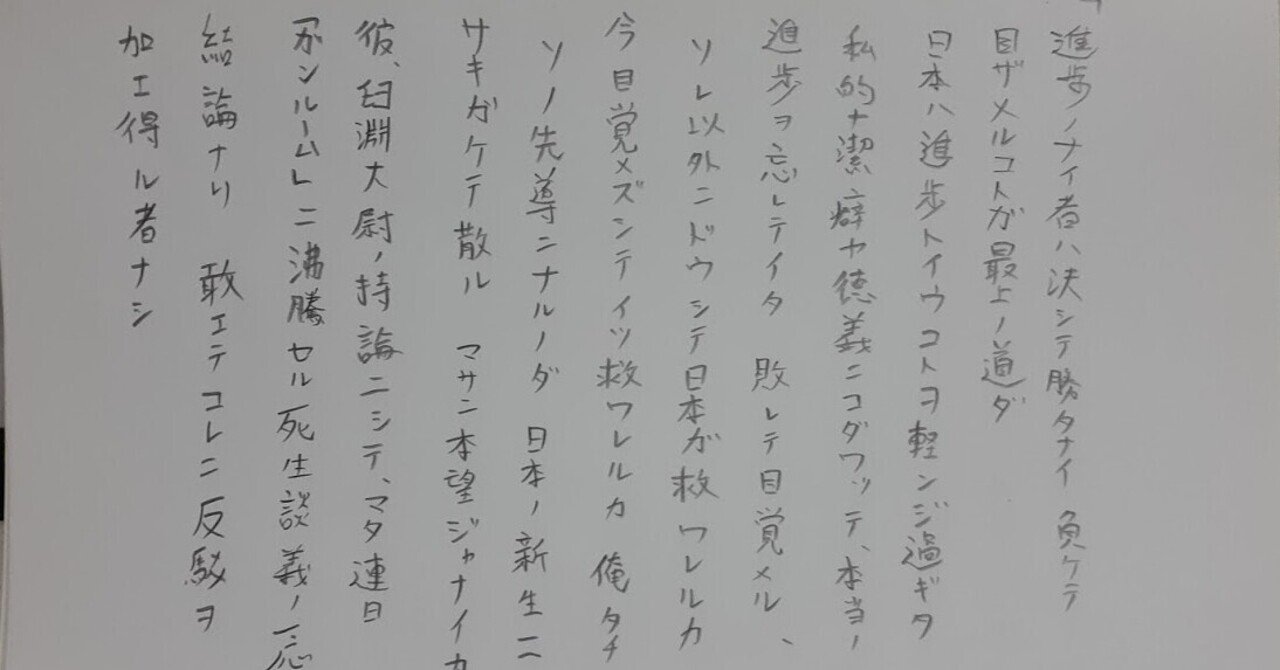 「進歩ノナイ者ハ決シテ勝タナイ 負ケテ
目ザメルコトガ最上ノ道ダ
日本ハ進歩トイウコトヲ軽ンジ過ギタ
私的ナ潔癖ヤ徳義ニコダワッテ、本当ノ
進歩ヲ忘レテイタ 敗レテ目覚メル、
ソレ以外ニドウシテ日本ガ救ワレルカ
今目覚メズシテイツ救ワレルカ 俺タチ
ソノ先導ニナルノダ 日本ノ新生ニ
サキガケテ散ル マサニ本望ジャナイカ
彼、臼淵大尉ノ持論ニシテ、マタ連日
「ガンルーム」ニ沸騰セル死生談義ノ一応
結論ナリ 敢エテコレニ反駁ヲ
加エ得ル者ナシ